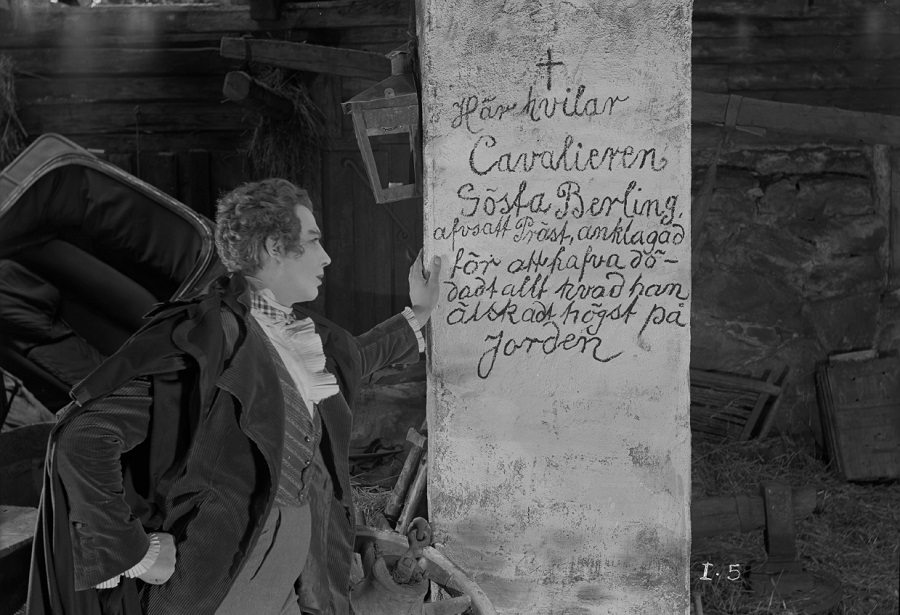 Här hvilar
Cavalieren
Gösta Berling,
afvsatt Präst, anklagad
för att hafva dö-
dadt allt hvad han
älskadt högst på
Jorden
I.5